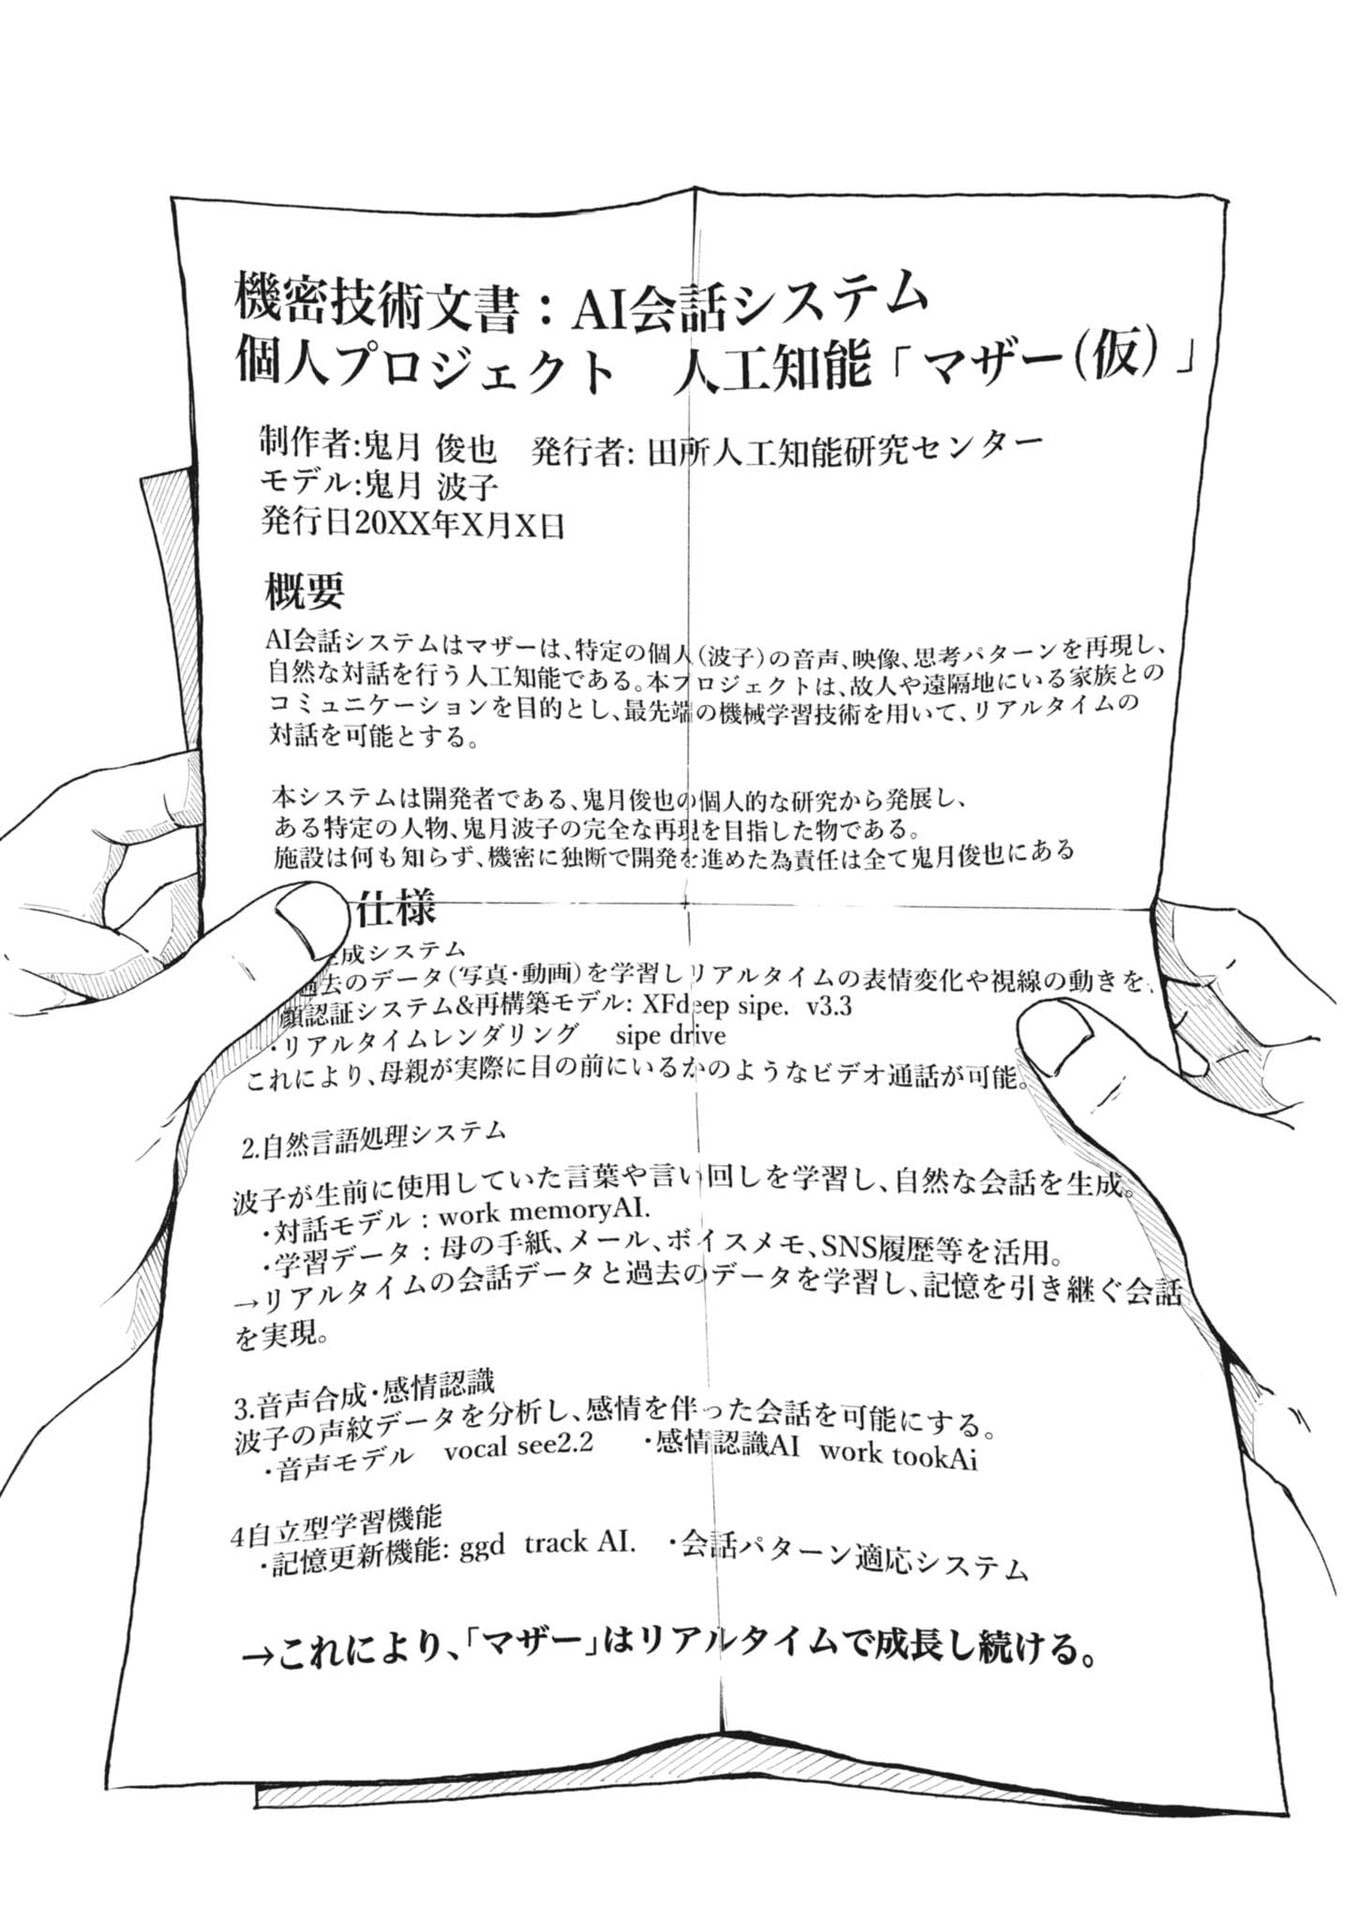 機密技術文書：AI会話システム
個人プロジェクト　人工知能「マザー(仮)」
制作者:鬼月 俊也　発行者: 田所人工知能研究センター
モデル:鬼月 波子
発行日20XX年X月X日
概要
AI会話システムはマザーは、特定の個人(波子)の音声、映像、思考パターンを再現し、
自然な対話を行う人工知能である。本プロジェクトは、故人や遠隔地にいる家族との
コミュニケーションを目的とし、最先端の機械学習技術を用いて、リアルタイムの
対話を可能とする。
本システムは開発者である、鬼月俊也の個人的な研究から発展し、
ある特定の人物、鬼月波子の完全な再現を目指した物である。
施設は何も知らず、機密に独断で開発を進めた為責任は全て鬼月俊也にある
仕様
成システム
過去のデータ(写真・動画)を学習しリアルタイムの表情変化や視線の動きを、
顔認証システム&再構築モデル: XFdeep sipe. v3.3
・リアルタイムレンダリング　sipe drive
これにより、母親が実際に目の前にいるかのようなビデオ通話が可能。
2.自然言語処理システム
波子が生前に使用していた言葉や言い回しを学習し、自然な会話を生成。
・対話モデル：work memoryAI.
・学習データ：母の手紙、メール、ボイスメモ、SNS履歴等を活用。
→リアルタイムの会話データと過去のデータを学習し、記憶を引き継ぐ会話
を実現。
3.音声合成・感情認識
波子の声紋データを分析し、感情を伴った会話を可能にする。
・音声モデル　vocal see2.2　・感情認識AI work tookAi
4自立型学習機能
・記憶更新機能: ggd track AI.　・会話パターン適応システム
→これにより、「マザー」はリアルタイムで成長し続ける。